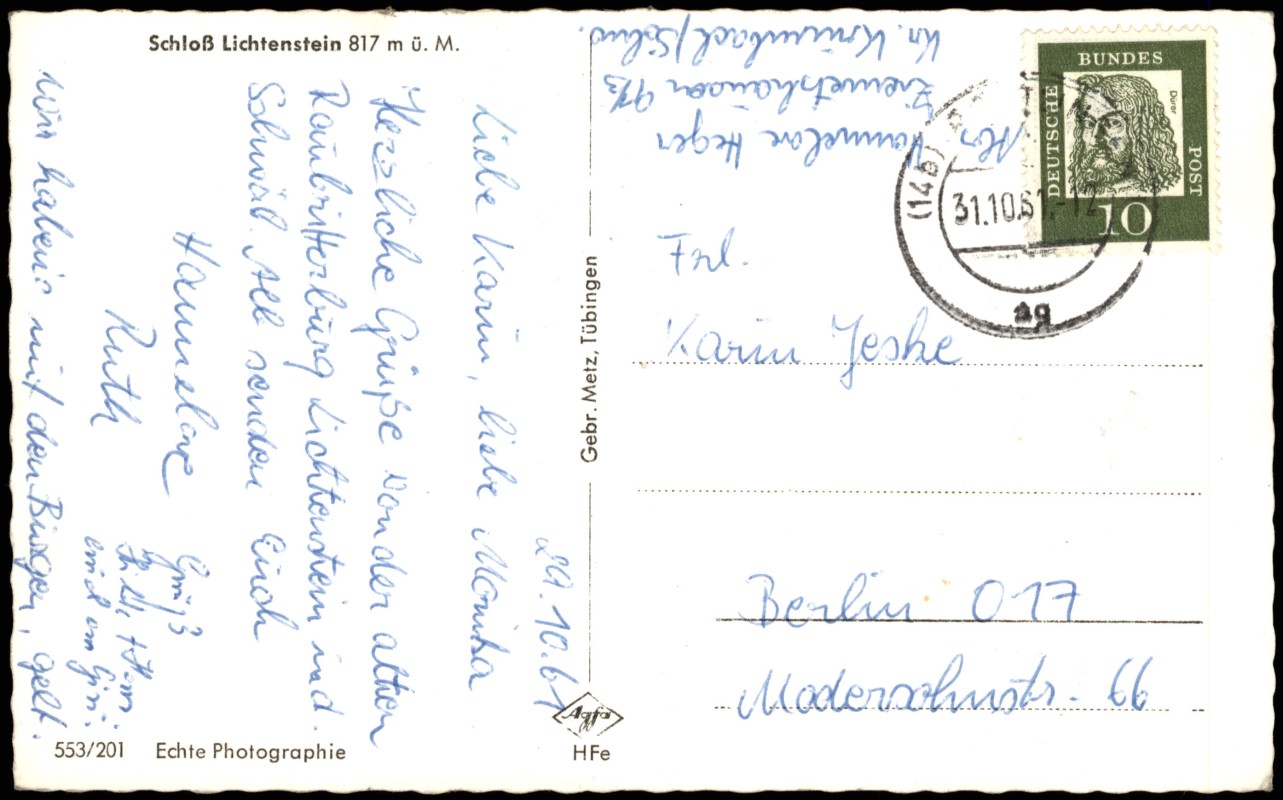 Schloß Lichtenstein 817 m ü. M.
29.10.61
Liebe Karin, liebe Monika
Herzliche Grüße von der alten
Raubritterburg Lichtenstein ind.
Schwäb. Alb senden Euch
Hannelore
Ruth
Gruß
und an
Wir haben's mit den Burgen, gelt.
553/201 Echte Photographie
Gebr. Metz, Tübingen
Agfa
HFe
Abs Hannelore Heger
Ziemetshausen 9 1/3
Kr. Krumbach/Schw.
DEUTSCHE
BUNDES
POST
Dürer
10
(14b)
31.10.61.-12
ag
Frl.
Karin Jeske
Berlin O17
Modersohnstr. 66